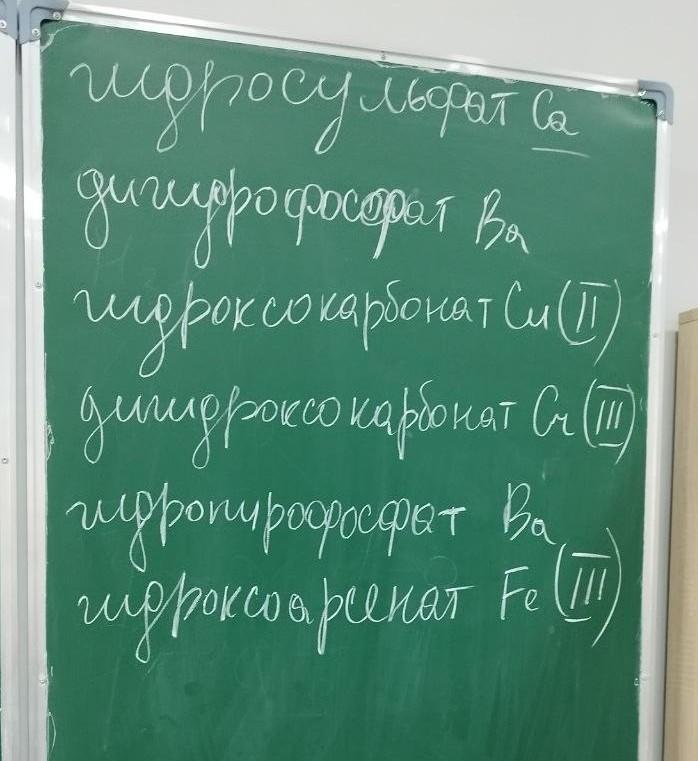 гидросульфат Ca
дигидрофосфат Ba
гидроксокарбонат Cu (II)
дигидроксокарбонат Cr (III)
гидропирофосфат Ba
гидроксоарсенат Fe (III)